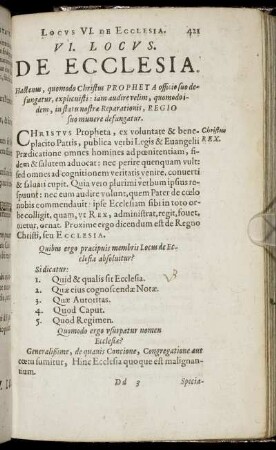 LOCUS VI. DE ECCLESIA. 421
VI. LOCVS.
DE ECCLESIA.
Hactenus, quomodo Christus PROPHETA officio suo de-
fungatur, explicuisti: iam audire velim, quomodo i-
dem, in statu nostræ Reparationis, REGIO
suo munere defungatur.
CHRISTVS Propheta, ex voluntate & bene- Christus
placito Patris, publica verbi Legis & Euangelii REX.
Prædicatione omnes homines ad pœnitentiam, fi-
dem & salutem aduocat: nec perire quenquam vult:
sed omnes ad cognitionem veritatis venire, conuerti
& saluari cupit. Quia vero plurimi verbum ipsius re-
spuunt: nec eum audire volunt, quem Pater de cœlo
nobis commendauit: ipse Ecclesiam sibi in toto
orbe colligit, quam, vt REX, administrat, regit, fouet,
tuetur, ornat. Proxime ergo dicendum est de Regno
Christi, seu ECCLESIA.
Quibus ergo præcipuis membris Locus de Ec-
clesia absoluitur?
Si dicatur:
1. Quid & qualis sit Ecclesia.
2. Quæ eius cognoscendæ Notæ.
3. Quæ Autoritas.
4. Quod Caput.
5. Quod Regimen.
Quomodo ergo vsurpatur nomen
Ecclesiæ?
Generalissime, de quauis Concione, Congregatione aut
cœtu sumitur, Hinc Ecclesia quoque est malignan-
tium.
Dd 3 Specia-